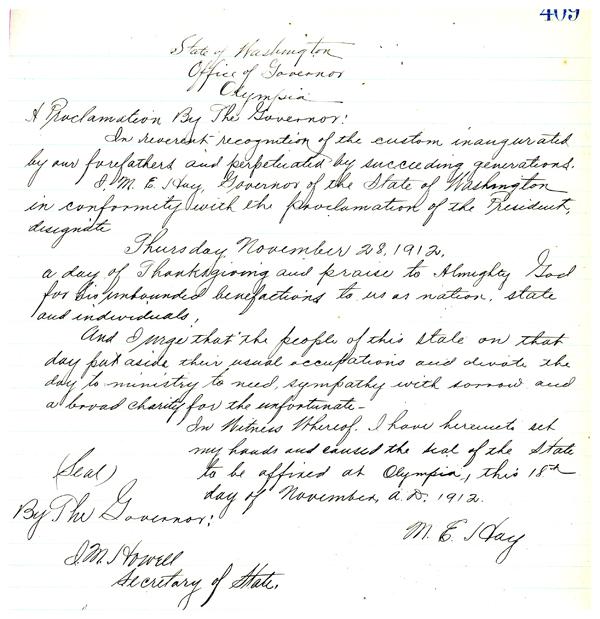 409
State of Washington
Office of Governor
Olympia
A Proclamation By The Governor:
In reverent recognition of the custom inaugurated
by our forefathers and perpetuated by succeeding generations.
I, M. E. Hay, Governor of the State of Washington
in conformity with the proclamation of the President,
designate
Thursday November 28, 1912,
a day of Thanksgiving and praise to Almighty God
for His unbounded benefactions to us as nation, state
and individuals,
And I urge that the people of this state on that
day put aside their usual occupations and devote the
day to ministry to need, sympathy with sorrow and
a broad charity for the unfortunate-
In Witness Whereof, I have hereunto set
my hands and caused the seal of the State
(Seal) to be affixed at Olympia, this 18th
day of November, A.D. 1912.
By The Governor:
M. E. Hay
I. M. Howell
Secretary of State.